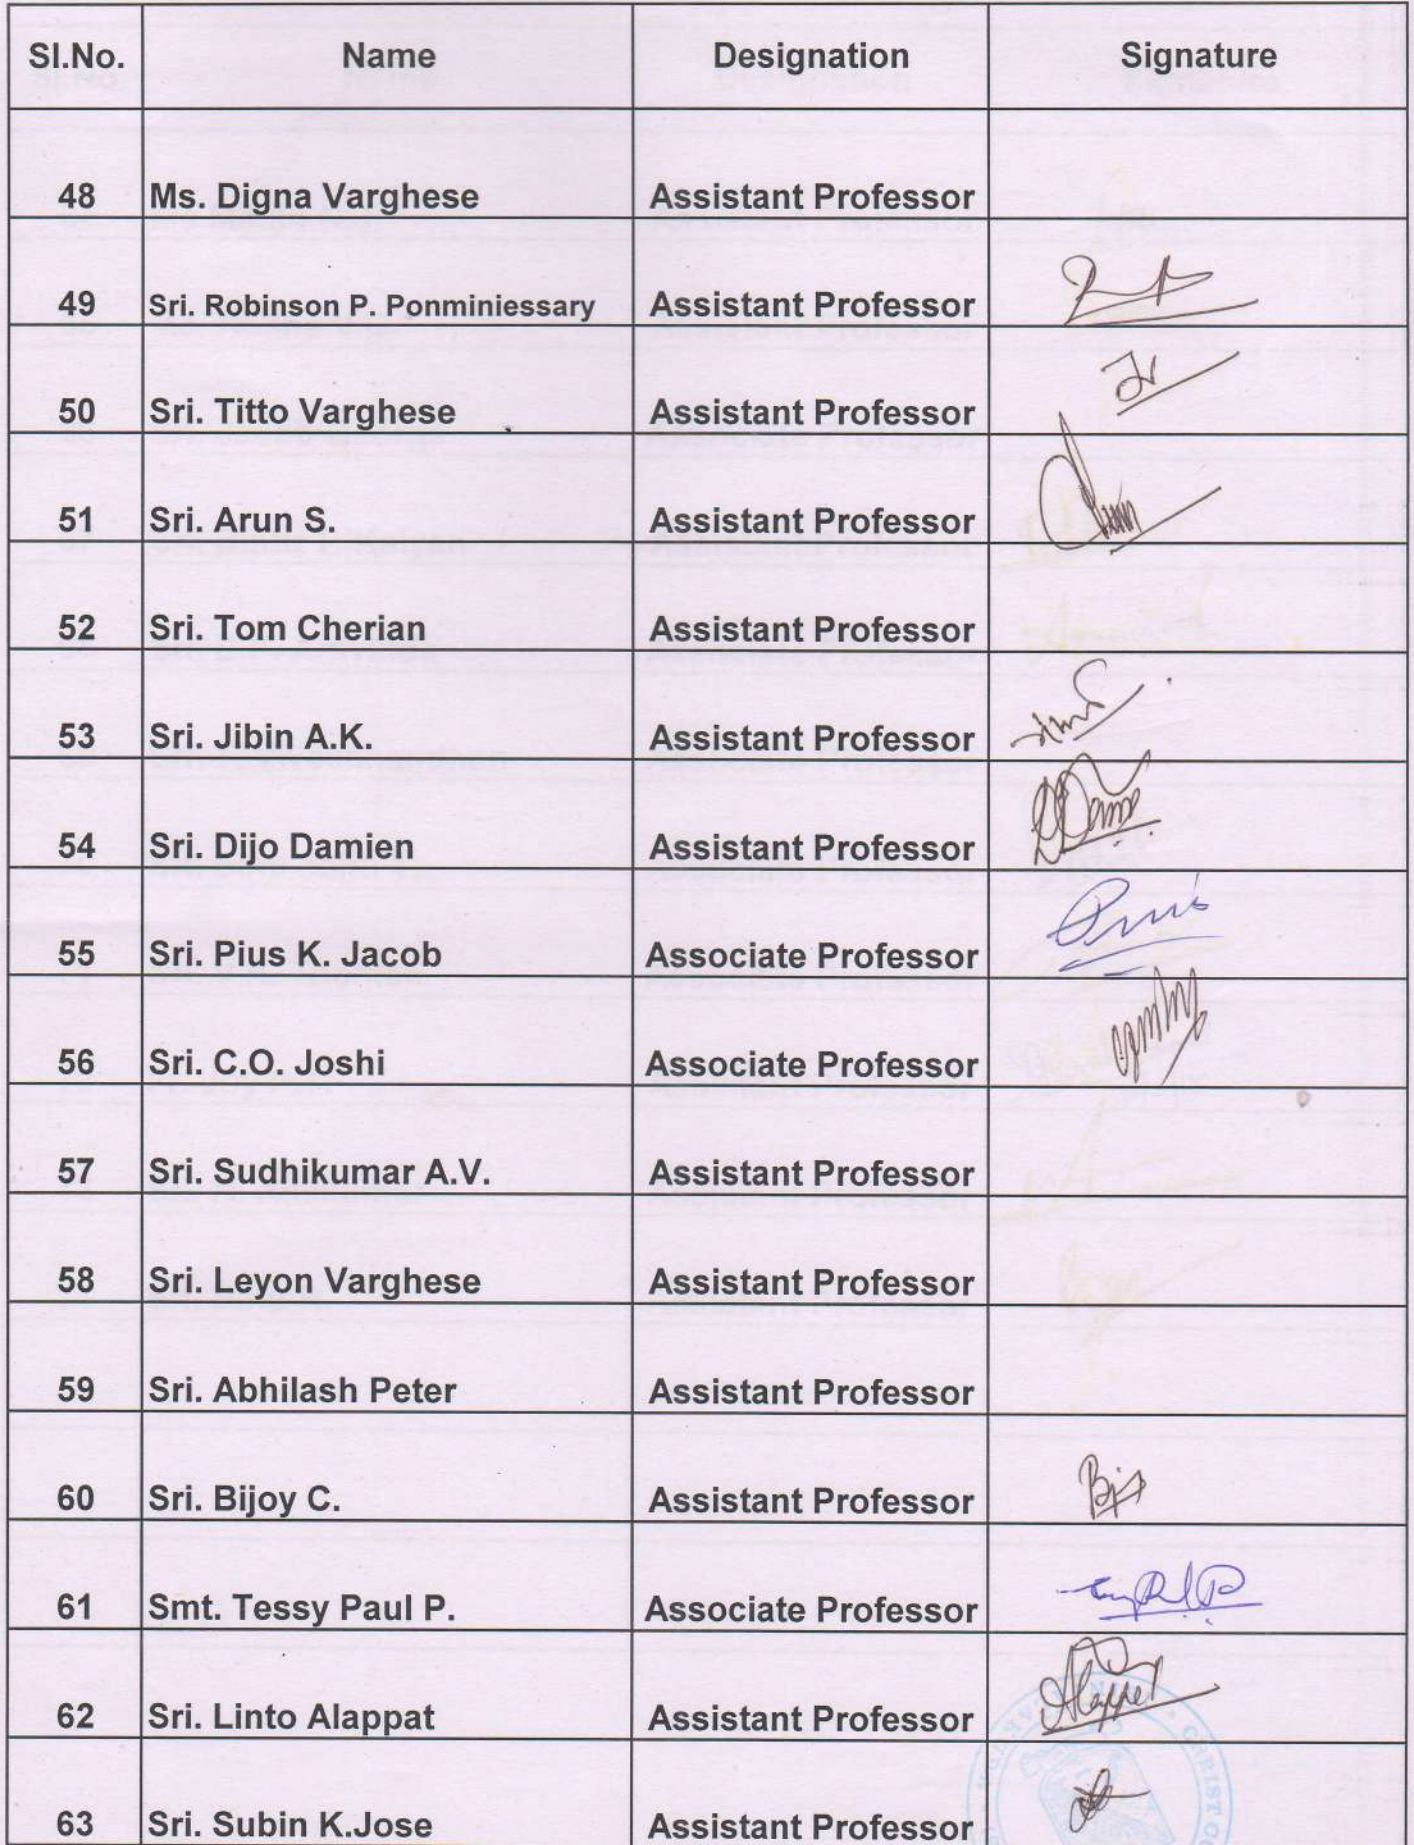 Sl.No. Name Designation Signature
48 Ms. Digna Varghese Assistant Professor
49 Sri. Robinson P. Ponminiessary Assistant Professor
50 Sri. Titto Varghese Assistant Professor
51 Sri. Arun S. Assistant Professor
52 Sri. Tom Cherian Assistant Professor
53 Sri. Jibin A.K. Assistant Professor
54 Sri. Dijo Damien Assistant Professor
55 Sri. Pius K. Jacob Associate Professor
56 Sri. C.O. Joshi Associate Professor
57 Sri. Sudhikumar A.V. Assistant Professor
58 Sri. Leyon Varghese Assistant Professor
59 Sri. Abhilash Peter Assistant Professor
60 Sri. Bijoy C. Assistant Professor
61 Smt. Tessy Paul P. Associate Professor
62 Sri. Linto Alappat Assistant Professor
63 Sri. Subin K.Jose Assistant Professor
CHRIST